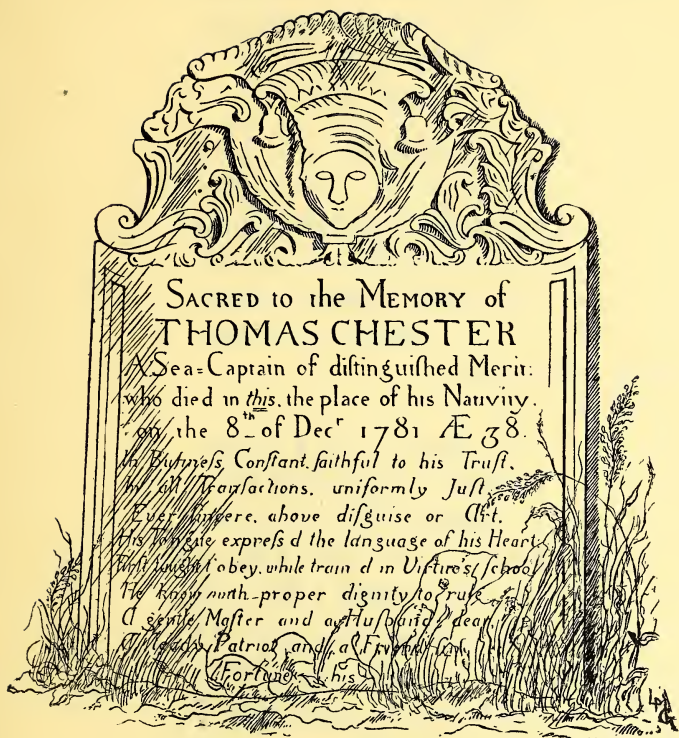 SACRED to the MEMORY of
THOMAS CHESTER
A Sea=Captain of diſtinguiſhed Merit:
who died in this, the place of his Nativity.
on the 8th of Decr 1781 Æ 38.
In Buſineſs Conſtant, faithful to his Truſt,
In all Tranſactions, uniformly Juſt,
Ever ſincere, above diſguise or Art,
His Tongue expreſs'd the language of his Heart,
Firſt taught t'obey, while train'd in Virtue's ſchool
He knew with proper dignity to rule
A gentle Maſter and a Huſband dear,
A ſteady Patriot and a Friend
Fortune his